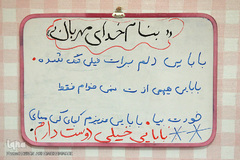 «بنام خدای مهربان»
بابایی دلم برات خیلی تنگ شده.
بابایی هیچی ازت نمی خوام فقط
خودت بیا. بابایی عزیزم کی می یای
بابایی خیلی دوست دارم.